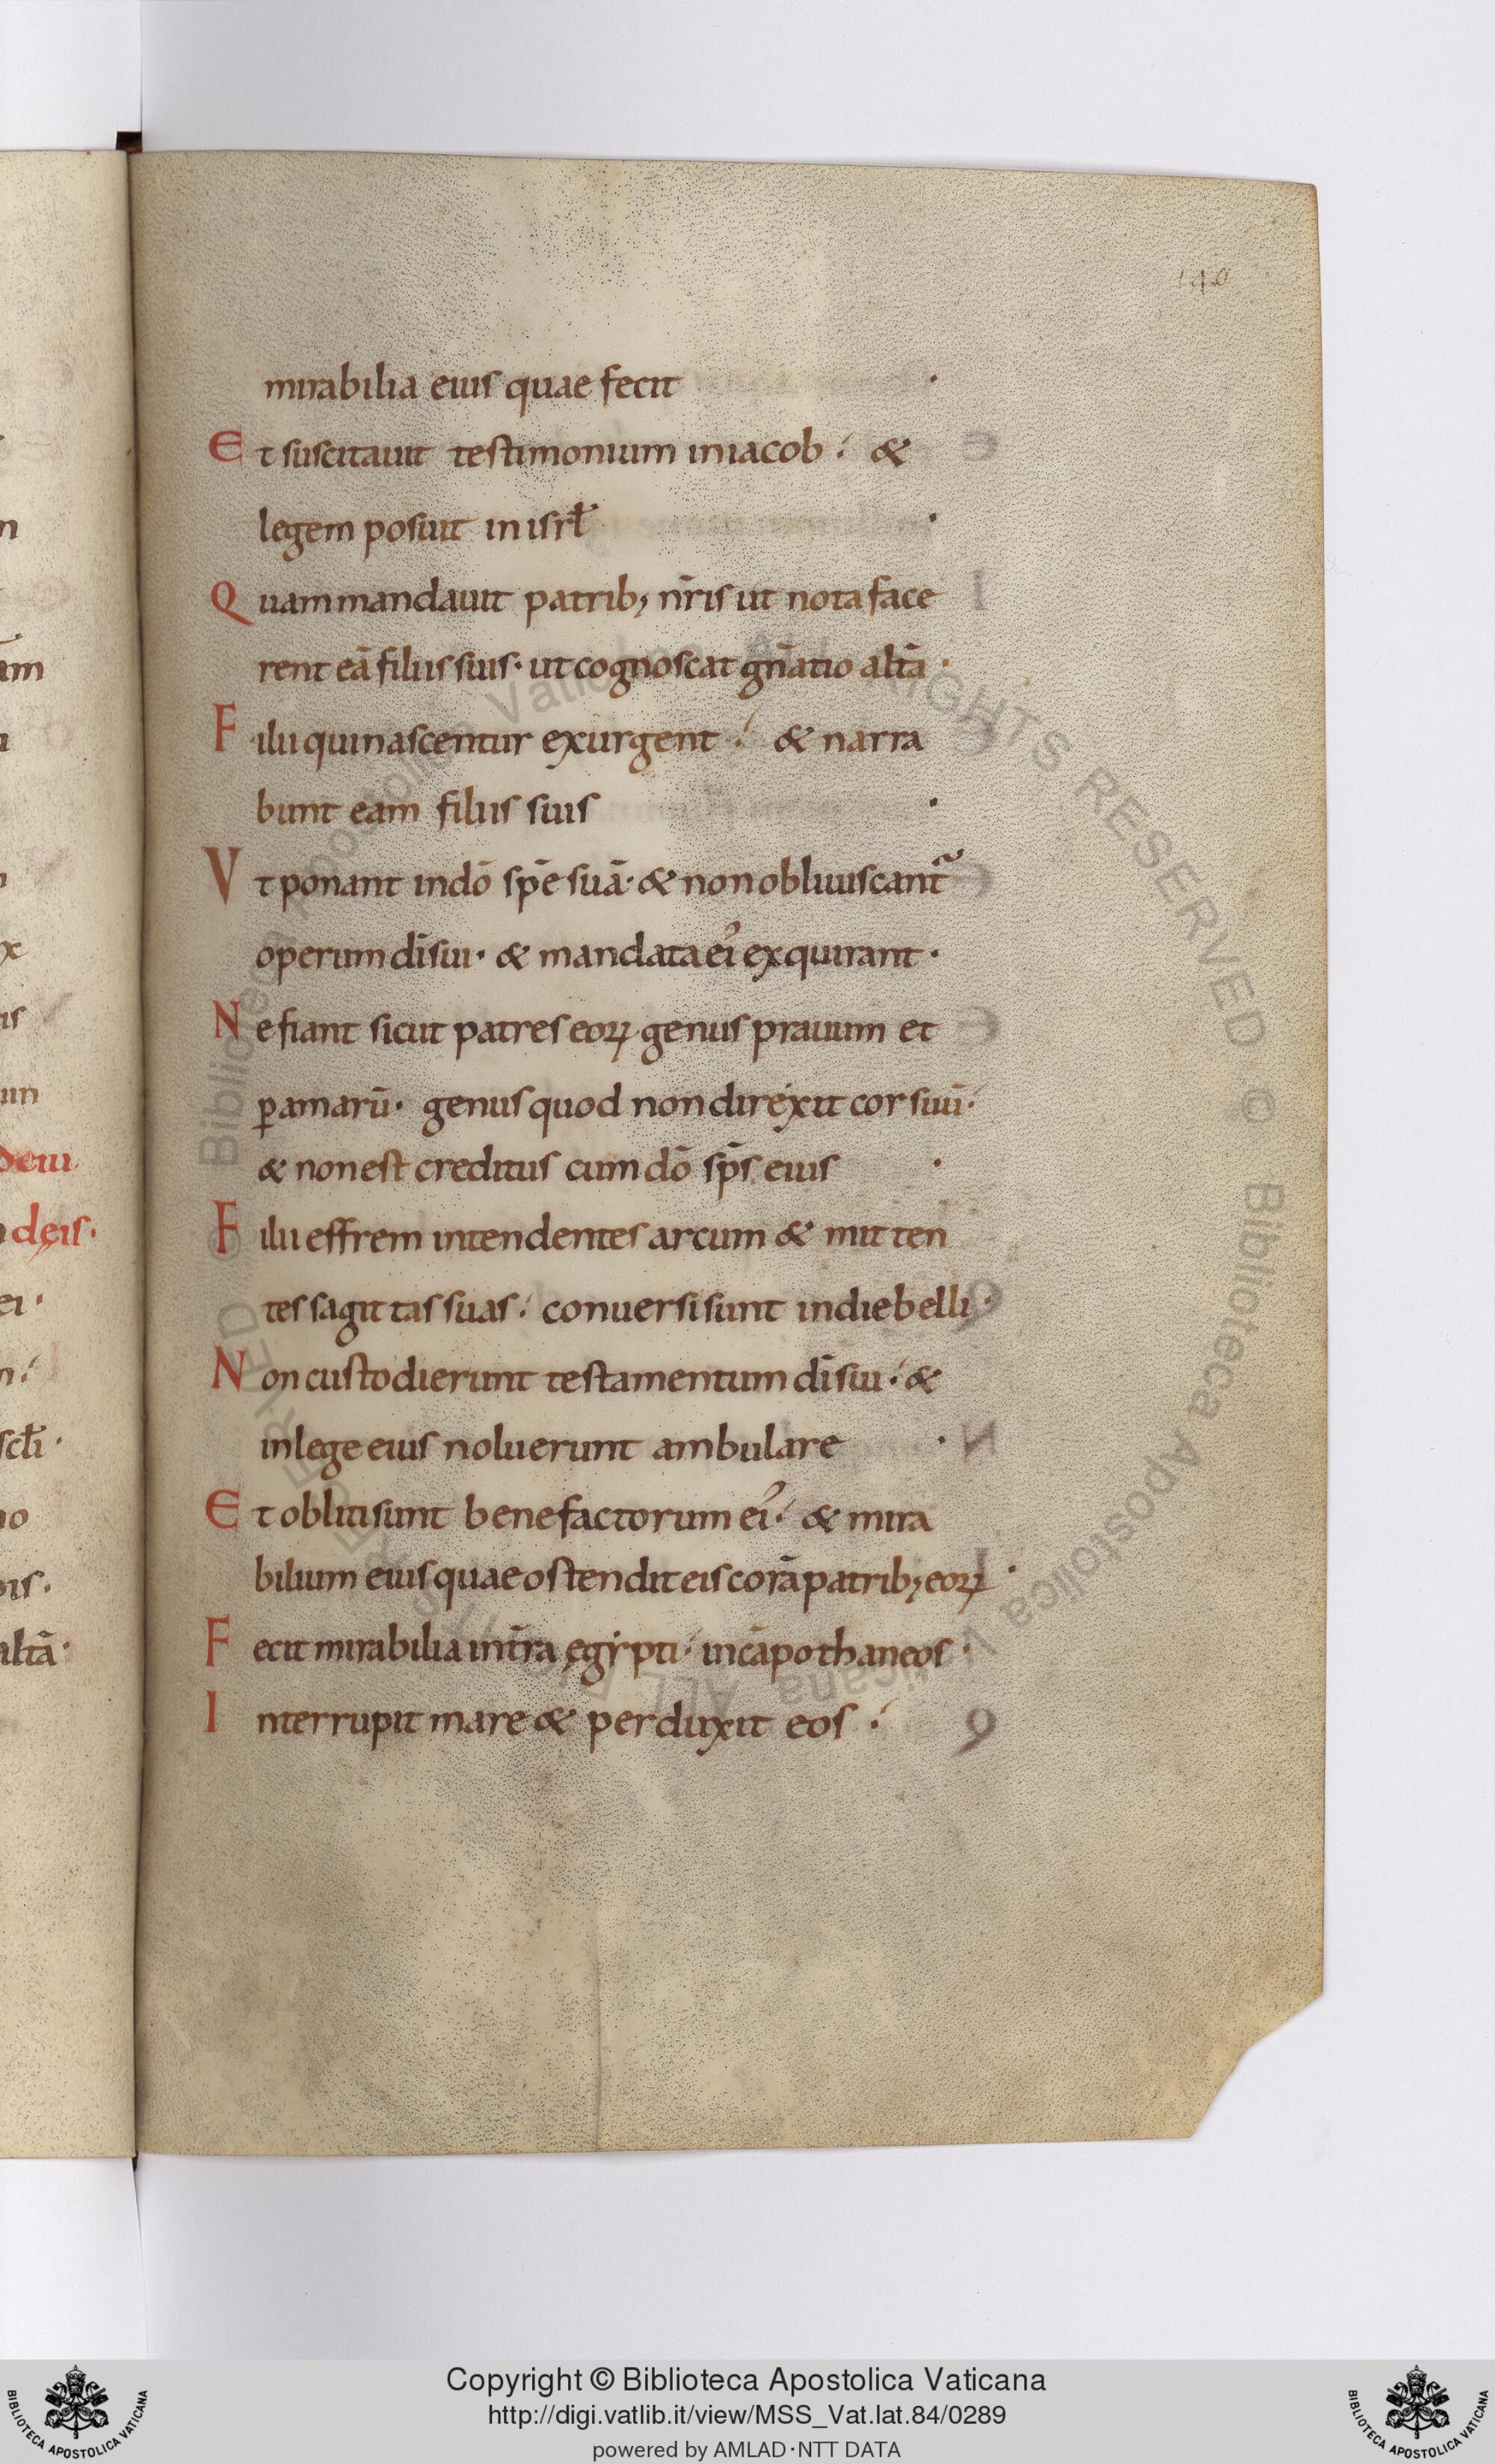 140
mirabilia eius quae fecit ·
Et suscitauit testimonium iniacob ·́ &
legem posuit in isrł ·
Quam mandauit patrib; nr̄is ut nota face
rent eā filiis suis · ut cognoscat gn̄atio altā ·
Filii qui nascentur exurgent ·́ & narra
bunt eam filiis suis ·
Vt ponant indō spē suā · & non obliuiscant᷑
operum dī sui · & mandata ei᾽ exquirant ·
Ne fiant sicut patres eoꝝ genus prauum et
ꝑamarū · genus quod non direxit cor suū ·́
& non est creditus cum dō sp̄s eius ·
Filii effrem intendentes arcum & mitten
tes sagittas suas ·́ conuersi sunt in die belli ·
Non custodierunt testamentum dī sui ·́ &
in lege eius noluerunt ambulare ·
Et obliti sunt benefactorum ei᾽ ·́ & mira
bilium eius quae ostendit eis corā patrib; eoꝝ ·
Fecit mirabilia int̄ra ęgypti ·́ incāpo thaneos ·
Interrupit mare & perduxit eos ·́
Copyright © Biblioteca Apostolica Vaticana
http://digi.vatlib.it/view/MSS_Vat.lat.84/0289
powered by AMLAD·NTT DATA